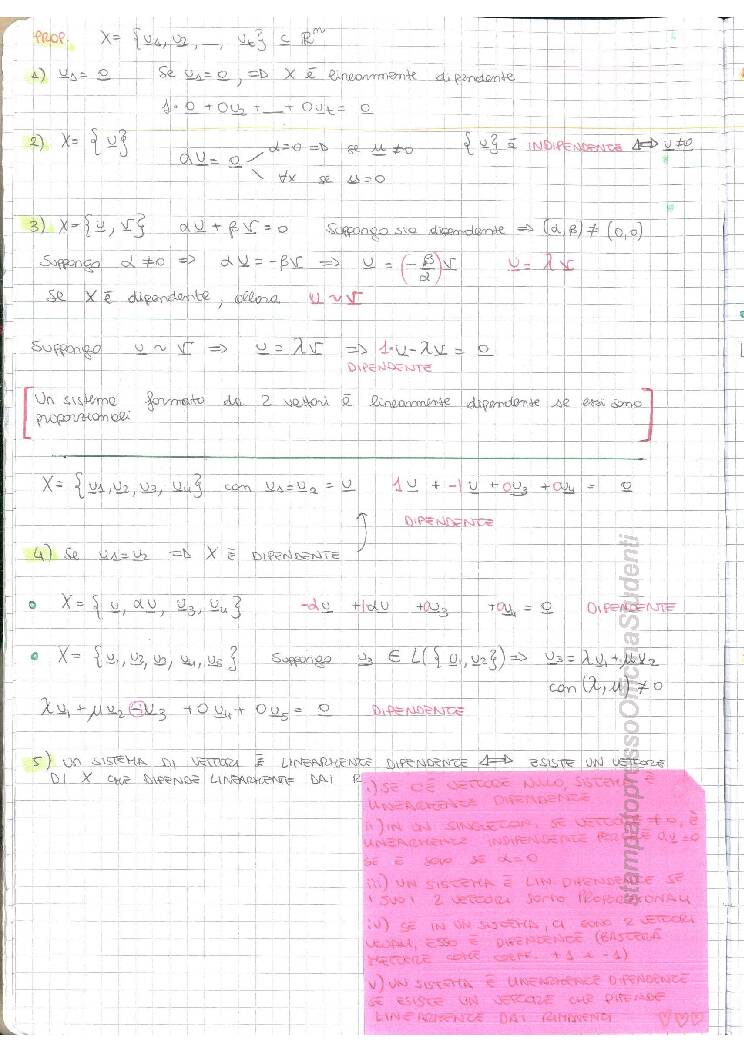 PROP. X = {v1, v2, _, vt} ⊆ ℝⁿ
1) v1 = 0 Se v1 = 0, => X è linearmente dipendente
1·0 + 0v2 + _ + 0vt = 0
2) X = {v} αv = 0 α=0 => se u ≠ 0 {v} è INDIPENDENTE <=> v ≠ 0
∀x se u = 0
3) X = {u, v} αu + βv = 0 Suppongo sia dipendente => (α, β) ≠ (0,0)
Suppongo α ≠ 0 => αu = -βv => u = (-β/α)v u = λv
Se X è dipendente, allora u ~ v
Suppongo u ~ v => u = λv => 1·u - λv = 0
DIPENDENTE
[Un sistema formato da 2 vettori è linearmente dipendente se essi sono
proporzionali]
X = {v1, v2, v3, v4} con v1 = v2 = v 1v + -1v + 0v3 + 0v4 = 0
DIPENDENTE
4) Se v1 = v2 => X è DIPENDENTE
X = {v, αv, v3, v4} -αv +1αv +0v3 +0v4 = 0 DIPENDENTE
X = {v1, v2, v3, v4, v5} Suppongo v3 ∈ L({v1, v2}) => v3 = λv1 + μv2
con (λ, μ) ≠ 0
λv1 + μv2 -1v3 + 0v4 + 0v5 = 0 DIPENDENTE
5) UN SISTEMA DI VETTORI È LINEARMENTE DIPENDENTE <=> ESISTE UN VETTORE
DI X CHE DIPENDE LINEARMENTE DAI R
i) SE C'È VETTORE NULLO, SISTEMA È
LINEARMENTE DIPENDENTE
ii) IN UN SINGLETON, SE VETTORE ≠ 0, È
LINEARMENTE INDIPENDENTE PERCHÉ αv = 0
SE E SOLO SE α = 0
iii) UN SISTEMA È LIN. DIPENDENTE SE
I SUOI 2 VETTORI SONO PROPORZIONALI
iv) SE IN UN SISTEMA, CI SONO 2 VETTORI
UGUALI, ESSO È DIPENDENTE (BASTERÀ
METTERE COME COEFF. +1 e -1)
v) UN SISTEMA È LINEARMENTE DIPENDENTE
SE ESISTE UN VETTORE CHE DIPENDE
LINEARMENTE DAI RIMANENTI
stampatopressoOfficinaStudenti